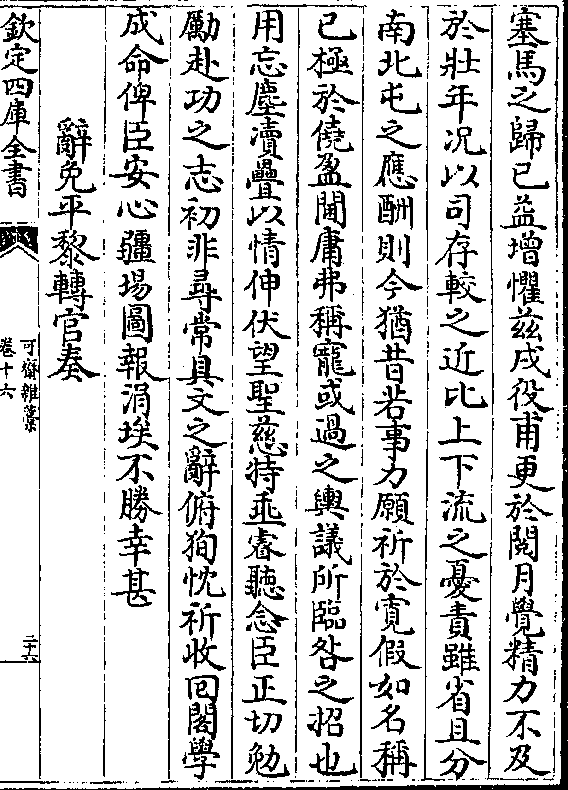 塞馬之歸已益增懼茲戍役甫更於閱月覺精力不及
於壯年况以司存較之近比上下流之憂責雖省且分
南北屯之應酬則今猶昔若事力願祈於寛假如名稱
已極於僥盈閫庸弗稱寵或過之輿議所臨咎之招也
用忘塵瀆疊以情伸伏望聖慈特垂睿聽念臣正切勉
勵赴功之志初非尋常具文之辭俯狥忱祈收囘閣學
成命俾臣安心疆埸圖報涓埃不勝幸甚
辭免平黎轉官奏
欽定四庫全書
可齋雜藁
卷十六
二十六